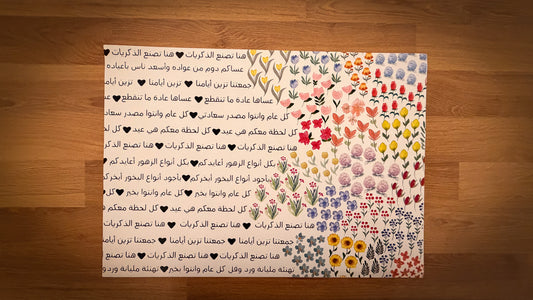 هنا تصنع الذكريات ♥ هنا تصنع الذكريات
عساكم دوم من عواده واسعد ناس بأعياده
جمعتنا تزين أيامنا ♥ جمعتنا تزين أيامنا ♥
عساها عادة ما تنقطع ♥ عساها عادة ما تنقطع ♥
كل عام وانتوا مصدر سعادتي ♥ كل عام وانتوا مصدر
كل لحظة معكم هي عيد ♥ كل لحظة معكم هي عيد
هنا تصنع الذكريات ♥ هنا تصنع الذكريات ♥
بكل أنواع الزهور أعايدكم ♥ بكل أنواع الزهور أعايدكم
بأجود أنواع البخور أبخركم ♥ بأجود أنواع
كل عام وانتوا بخير ♥ كل عام وانتوا بخير ♥
كل لحظة معكم هي عيد ♥ كل لحظة معكم
هنا تصنع الذكريات ♥ هنا تصنع الذكريات ♥
جمعتنا تزين أيامنا ♥ جمعتنا تزين أيامنا ♥
هنا تصنع الذكريات ♥ هنا تصنع الذكريات ♥
تهنئة مليانة ورد وفل كل عام وانتوا بخير ♥ تهنئة